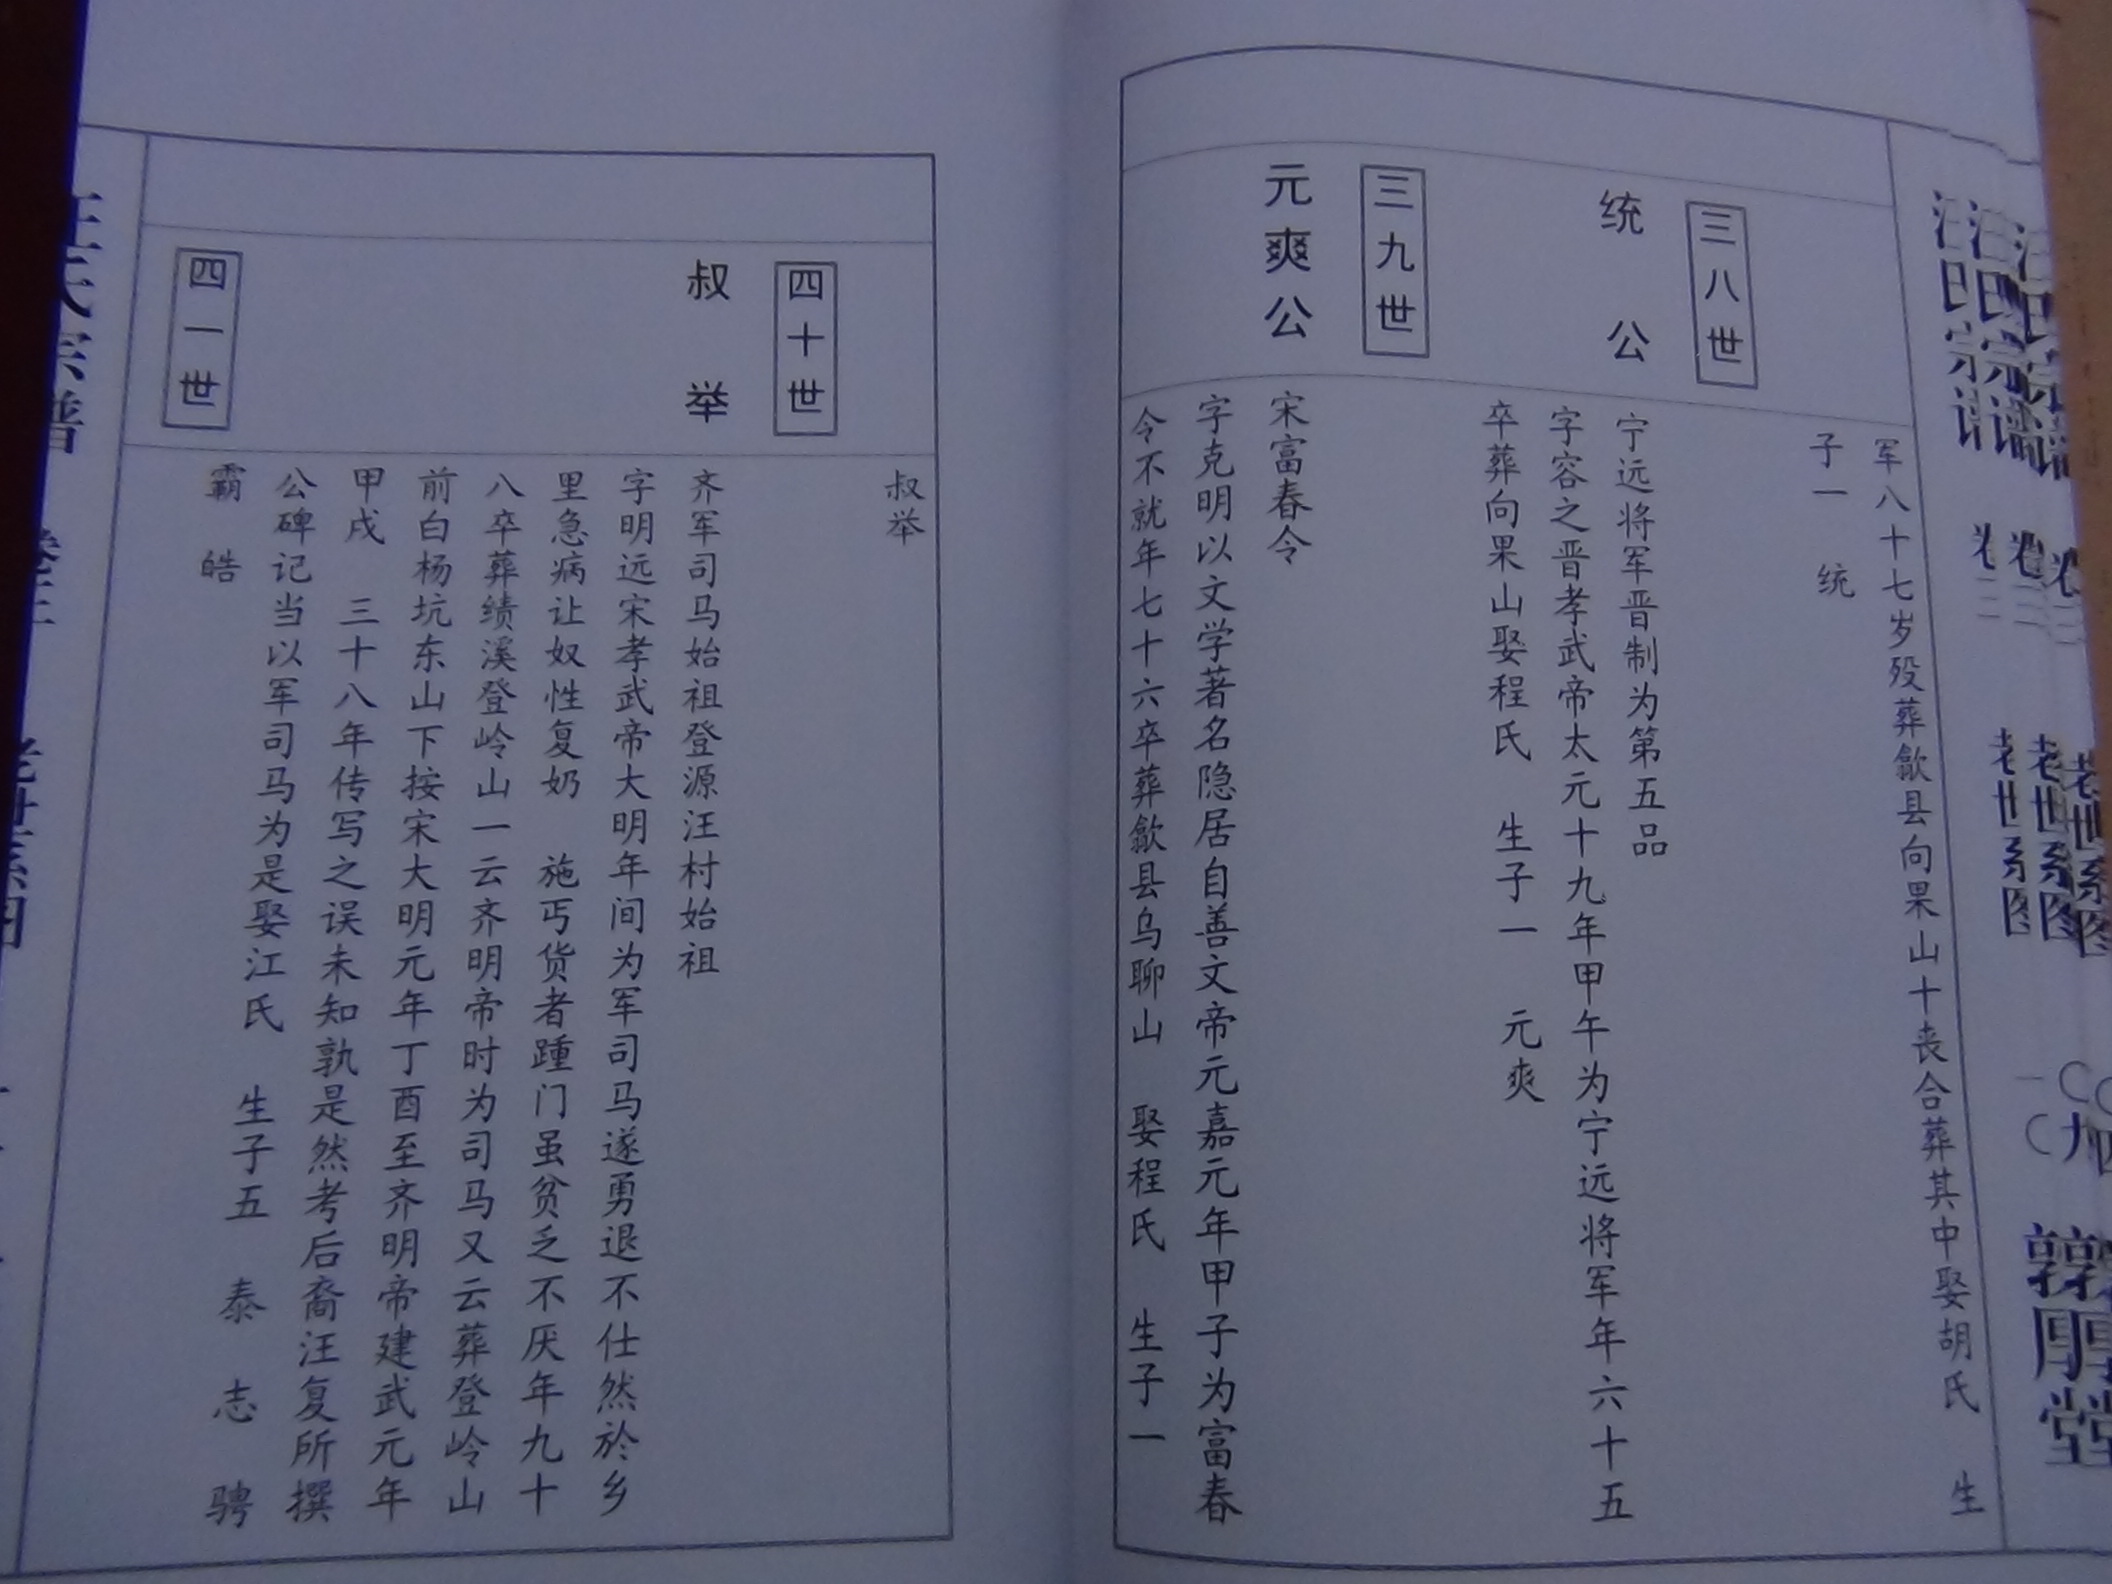 军八十七岁殁葬歙县向果山十丧合葬其中娶胡氏　生
子一　统
三八世
统公
宁远将军晋制为第五品
字容之晋孝武帝太元十九年甲午为宁远将军年六十五
卒葬向果山娶程氏　生子一　元爽
三九世
元爽公
宋富春令
字克明以文学著名隐居自善文帝元嘉元年甲子为富春
令不就年七十六卒葬歙县乌聊山　娶程氏　生子一
叔举
四十世
叔举
齐军司马始祖登源汪村始祖
字明远宋孝武帝大明年间为军司马遂勇退不仕然於乡
里急病让奴性复奶　施丐货者踵门虽贫乏不厌年九十
八卒葬绩溪登岭山一云齐明帝时为司马又云葬登岭山
前白杨坑东山下按宋大明元年丁酉至齐明帝建武元年
甲戌　三十八年传写之误未知孰是然考后裔汪复所撰
公碑记当以军司马为是娶江氏　生子五　泰　志　骋
霸　皓
四一世